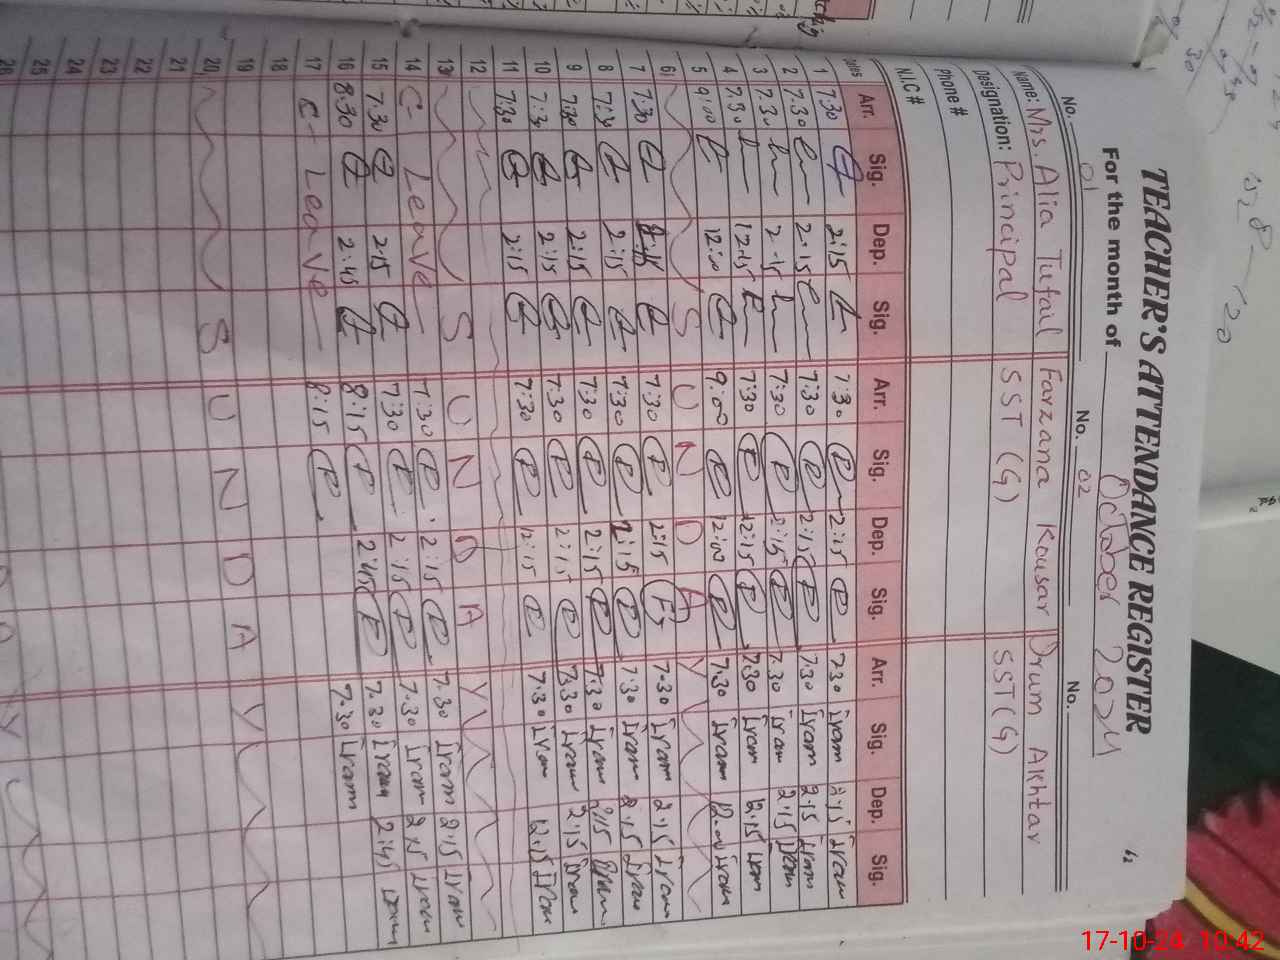 TEACHER'S ATTENDANCE REGISTER
For the month of October 2024
No. 01 No. 02 No.
Name: Mrs. Alia Tufail Farzana Kousar Irum Akhtar
Designation: Principal SST (G) SST (G)
Phone #
N.I.C #
Dates Arr. Sig. Dep. Sig. Arr. Sig. Dep. Sig. Arr. Sig. Dep. Sig.
1 7:30 2:15 7:30 2:15 7:30 Iram 2:15 Iram
2 7:30 2:15 7:30 2:15 7:30 Iram 2:15 Iram
3 7:30 2:15 7:30 2:15 7:30 Iram 2:15 Iram
4 7:30 12:15 7:30 12:15 7:30 Iram 12:15 Iram
5 9:00 12:00 9:00 12:00 7:30 Iram 12:00 Iram
6 S U N D A Y
7 7:30 7:30 2:15 7:30 Iram 2:15 Iram
8 7:30 2:15 7:30 2:15 7:30 Iram 2:15 Iram
9 7:30 2:15 7:30 2:15 7:30 Iram 2:15 Iram
10 7:30 2:15 7:30 2:15 7:30 Iram 2:15 Iram
11 7:30 2:15 7:30 12:15 7:30 Iram 12:15 Iram
12
13 S U N D A Y
14 C- Leave 7:30 2:15 7:30 Iram 2:15 Iram
15 7:30 2:15 7:30 2:15 7:30 Iram 2:15 Iram
16 8:30 2:45 8:15 2:45 7:30 Iram 2:45 Iram
17 C- Leave 8:15 7:30 Iram
18
19
20 S U N D A Y
21
22
23
24
25
26
17-10-24 10:42